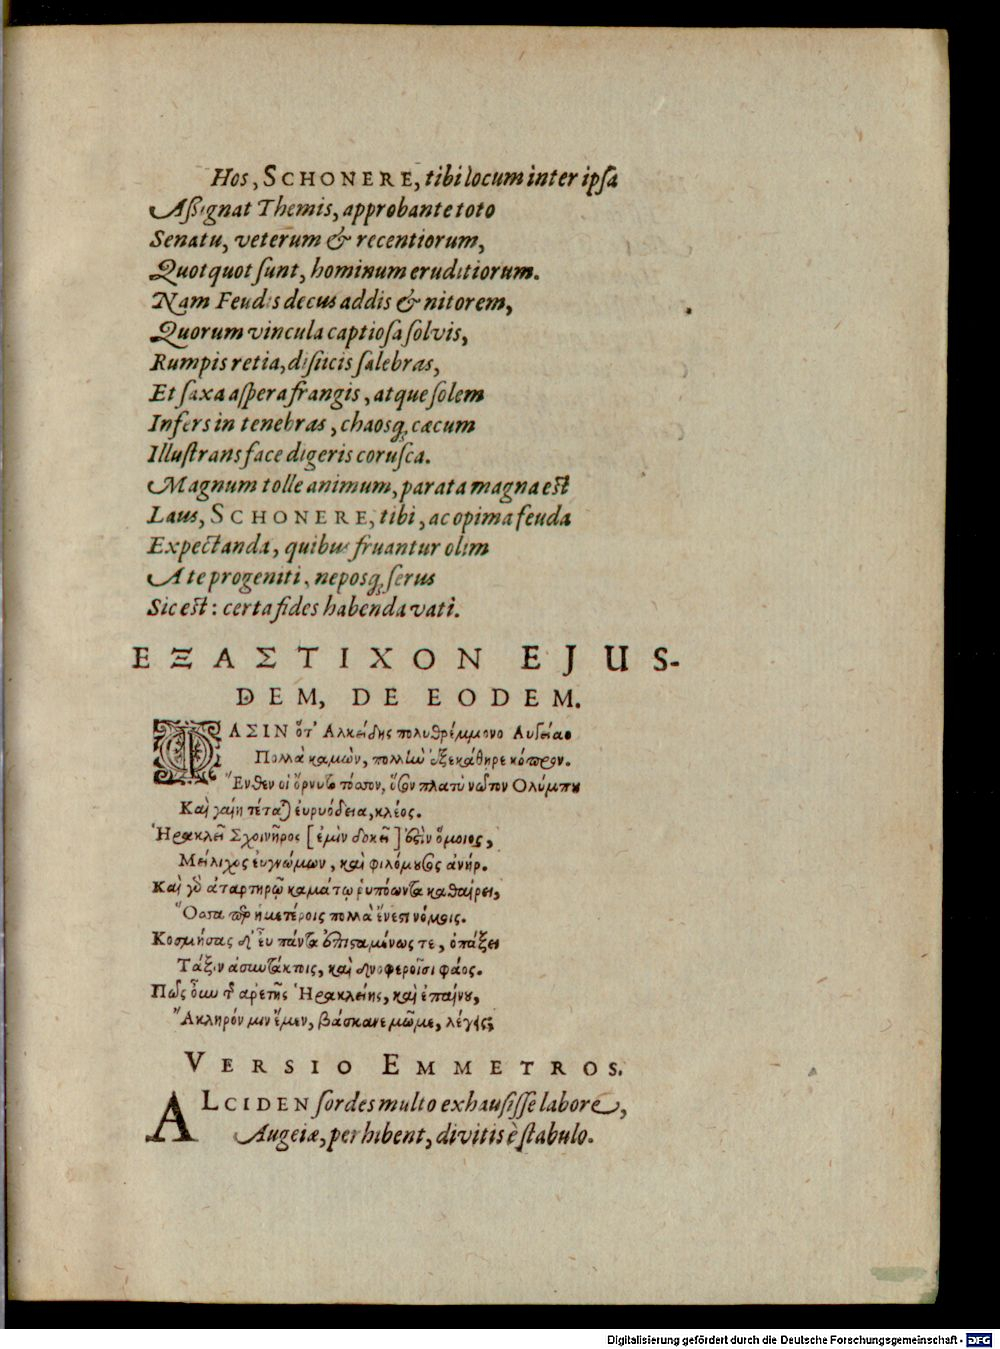 Hos, SCHONERE, tibi locum inter ipsa
Aſſignat Themis, approbante toto
Senatu, veterum & recentiorum,
Quotquot ſunt, hominum eruditiorum.
Nam Feudis decus addis & nitorem,
Quorum vincula captioſa ſolvis,
Rumpis retia, diſiicis ſalebras,
Et ſaxa aſpera frangis, atque ſolem
Infers in tenebras, chaosq; cæcum
Illuſtrans face digeris coruſca.
Magnum tolle animum, parata magna eſt
Laus, SCHONERE, tibi, ac opima feuda
Expectanda, quibus fruantur olim
A te progeniti, neposq; ſerus
Sic eſt: certa fides habenda vati.
ΕΞΑΣΤΙΧΟΝ EJUS-
DEM, DE EODEM.
ΦΑΣΙΝ ὅτ' Αλκείδης πολυθρέμμονο Αυγείαο
Πολλὰ καμὼν, πολλὴν ἐξεκάθηρε κόπρον.
Ἔνθεν οἱ ὄρνυτο τόσσον, ὅσον πλατὺ νῶτον Ολύμπου
Καὶ γαίη τέταται ἐυρυόδεια, κλέος.
Ἡρακλεῖ Σχοινῆρος [ἐμὶν δοκεῖ] ἐστὶν ὅμοιος,
Μείλιχος ἐυγνώμων, καὶ φιλόμουσος ἀνήρ.
Καὶ γὸ ἀταρτηρῷ καμάτῳ ῥυπόωντα καθαίρει,
Ὅσσα παρ ἡμετέροις πολλὰ ἔνεστι νόμοις.
Κοσμήσας δ' ἐυ πάντα ἐπισαμένως τε, ὀπάζει
Τάξιν ἀσυντάκτοις, καὶ δνοφεροῖσι φάος.
Πῶς οὖν τῆς αρετῆς Ἡρακλείης, καὶ ἐπαίνου,
Ἄκληρόν μιν ἔμεν, βάσκανε μῶμε, λέγεις;
VERSIO EMMETROS.
ALCIDEN ſordes multo exhauſiſſe labore,
Augeiæ, perhibent, divitis è ſtabulo.
Digitalisierung gefördert durch die Deutsche Forschungsgemeinschaft - DFG